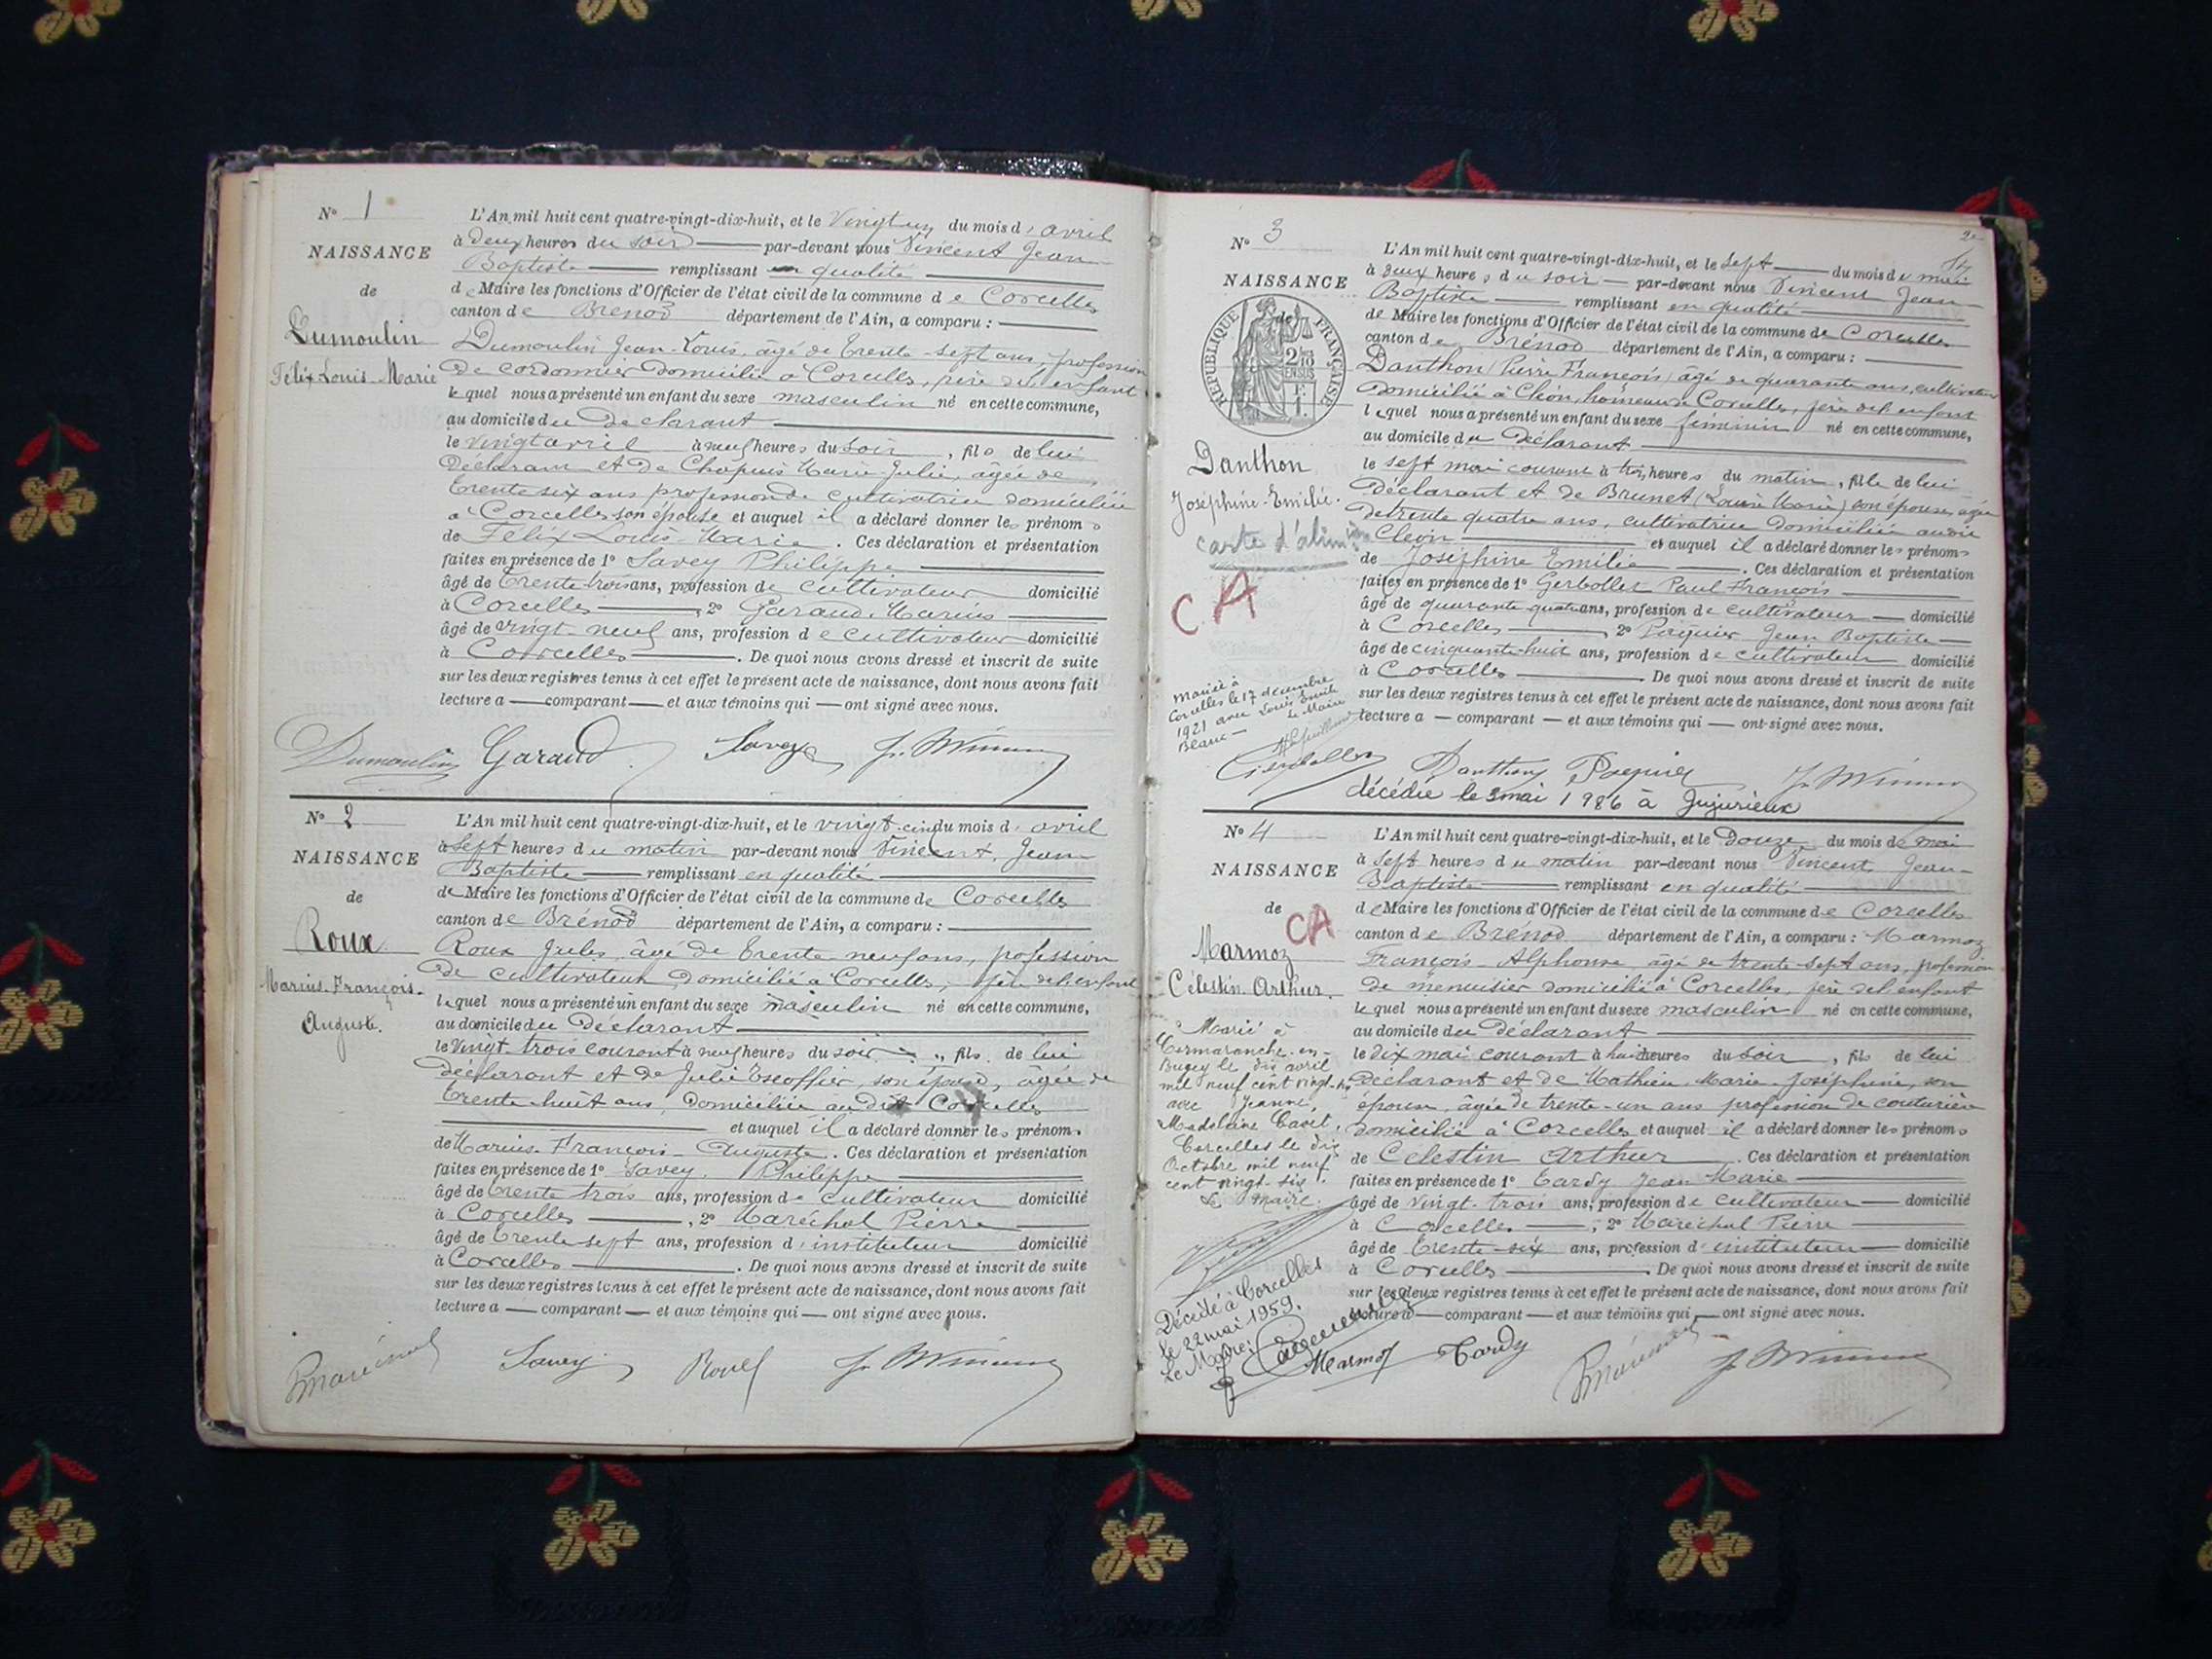 N° 1
NAISSANCE
de
Dumoulin
Félix-Louis-Marie
L'An mil huit cent quatre-vingt-dix-huit, et le Vingt un du mois d' avril
à deux heures du soir par-devant nous Vincent Jean
Baptiste remplissant en qualité
de Maire les fonctions d'Officier de l'état civil de la commune de Corcelles
canton de Brénod département de l'Ain, a comparu :
Dumoulin Jean-Louis, âgé de trente-sept ans, profession
de cordonnier domicilié à Corcelles, père de l'enfant
lequel nous a présenté un enfant du sexe masculin né en cette commune,
au domicile du Déclarant
le vingt avril à neuf heures du soir, fils de lui
Déclarant et de Chapuis Marie Julie, âgée de
trente six ans profession de cultivatrice domiciliée
à Corcelles son épouse et auquel il a déclaré donner les prénoms
de Félix Louis-Marie. Ces déclaration et présentation
faites en présence de 1° Savey Philippe
âgé de trente-trois ans, profession de cultivateur domicilié
à Corcelles, 2° Garaud Marius
âgé de vingt-neuf ans, profession de cultivateur domicilié
à Corcelles. De quoi nous avons dressé et inscrit de suite
sur les deux registres tenus à cet effet le présent acte de naissance, dont nous avons fait
lecture a — comparant — et aux témoins qui — ont signé avec nous.
Dumoulin Garaud Savey
N° 2
NAISSANCE
de
Roux
Marius-François-
Auguste.
L'An mil huit cent quatre-vingt-dix-huit, et le vingt-cinq du mois d' avril
à sept heures du matin par-devant nous Vincent Jean
Baptiste remplissant en qualité
de Maire les fonctions d'Officier de l'état civil de la commune de Corcelles
canton de Brénod département de l'Ain, a comparu :
Roux Jules, âgé de trente-neuf ans, profession
de cultivateur, domicilié à Corcelles, père de l'enfant
lequel nous a présenté un enfant du sexe masculin né en cette commune,
au domicile du Déclarant
le Vingt-trois courant à neuf heures du soir, fils de lui
déclarant et de Julie Escoffier, son épouse, âgée de
trente-huit ans, domiciliée au dit Corcelles
et auquel il a déclaré donner les prénoms
de Marius-François-Auguste. Ces déclaration et présentation
faites en présence de 1° Savey Philippe
âgé de trente trois ans, profession de cultivateur domicilié
à Corcelles, 2° Maréchal Pierre
âgé de trente sept ans, profession d' instituteur domicilié
à Corcelles. De quoi nous avons dressé et inscrit de suite
sur les deux registres tenus à cet effet le présent acte de naissance, dont nous avons fait
lecture a — comparant — et aux témoins qui — ont signé avec nous.
Savey
N° 3
NAISSANCE
de
RÉPUBLIQUE FRANÇAISE
Danthon
Joséphine-Emilie.
carte d'alim
CA
Mariée à
Corcelles le 17 décembre
1921 avec Louis Emile
Beauc
le Maire
L'An mil huit cent quatre-vingt-dix-huit, et le sept du mois de mai
à deux heures du soir par-devant nous Vincent Jean
Baptiste remplissant en qualité
de Maire les fonctions d'Officier de l'état civil de la commune de Corcelles
canton de Brénod département de l'Ain, a comparu :
Danthon (Pierre François) âgé de quarante ans, cultivateur
domicilié à Cléon, hameau de Corcelles, père de l'enfant
lequel nous a présenté un enfant du sexe féminin né en cette commune,
au domicile du Déclarant
le sept mai courant à trois heures du matin, fille de lui
déclarant et de Brunet (Louise Marie) son épouse, âgée
de trente quatre ans, cultivatrice domiciliée audit
Cléon et auquel il a déclaré donner les prénoms
de Joséphine Emilie. Ces déclaration et présentation
faites en présence de 1° Gerbollet Paul François
âgé de quarante quatre ans, profession de cultivateur domicilié
à Corcelles, 2° Jean Baptiste
âgé de cinquante-huit ans, profession de cultivateur domicilié
à Corcelles. De quoi nous avons dressé et inscrit de suite
sur les deux registres tenus à cet effet le présent acte de naissance, dont nous avons fait
lecture a — comparant — et aux témoins qui — ont signé avec nous.
Gerbollet Danthon
décédée le 3 mai 1986 à Jujurieux
N° 4
NAISSANCE
de
CA
Marmoz
Célestin-Arthur.
Marié à
Cormaranche-en-
Bugey le dix avril
mil neuf cent vingt-six
avec Jeanne,
Madeleine Cavet.
Corcelles le dix
Octobre mil neuf
cent vingt-six.
Le Maire.
Décédé à Corcelles
le 22 mai 1959.
Le Maire:
L'An mil huit cent quatre-vingt-dix-huit, et le Douze du mois de mai
à sept heures du matin par-devant nous Vincent Jean-
Baptiste remplissant en qualité
de Maire les fonctions d'Officier de l'état civil de la commune de Corcelles
canton de Brénod département de l'Ain, a comparu : Marmoz
François-Alphonse âgé de trente-sept ans, profession
de menuisier domicilié à Corcelles, père de l'enfant
lequel nous a présenté un enfant du sexe masculin né en cette commune,
au domicile du Déclarant
le dix mai courant à huit heures du soir, fils de lui
déclarant et de Mathieu Marie-Joséphine, son
épouse, âgée de trente-un ans profession de couturière
domicilié à Corcelles et auquel il a déclaré donner les prénoms
de Célestin Arthur. Ces déclaration et présentation
faites en présence de 1° Tardy Jean Marie
âgé de vingt-trois ans, profession de cultivateur domicilié
à Corcelles, 2° Maréchal Pierre
âgé de trente-six ans, profession d' instituteur domicilié
à Corcelles. De quoi nous avons dressé et inscrit de suite
sur les deux registres tenus à cet effet le présent acte de naissance, dont nous avons fait
lecture a — comparant — et aux témoins qui — ont signé avec nous.
Marmoz Tardy